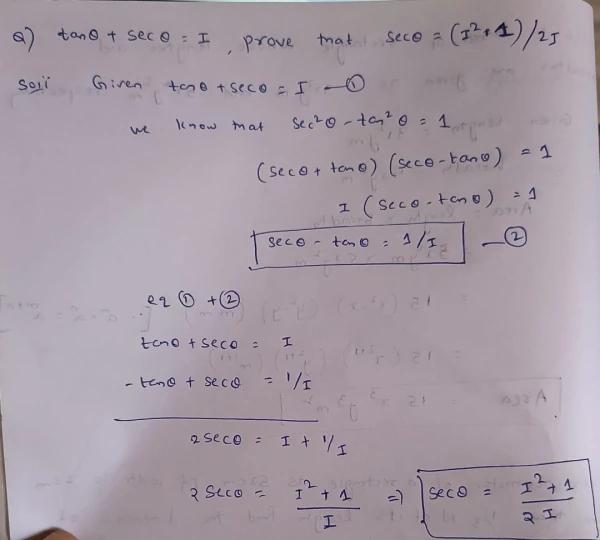 Q) tanθ + secθ = I , prove that secθ = (I² + 1)/2I
Soln: Given tanθ + secθ = I —①
we know that sec²θ - tan²θ = 1
(secθ + tanθ) (secθ - tanθ) = 1
I (secθ - tanθ) = 1
secθ - tanθ = 1/I —②
eq ① + ②
tanθ + secθ = I
- tanθ + secθ = 1/I
2secθ = I + 1/I
2secθ = (I² + 1)/I => secθ = (I² + 1)/2I